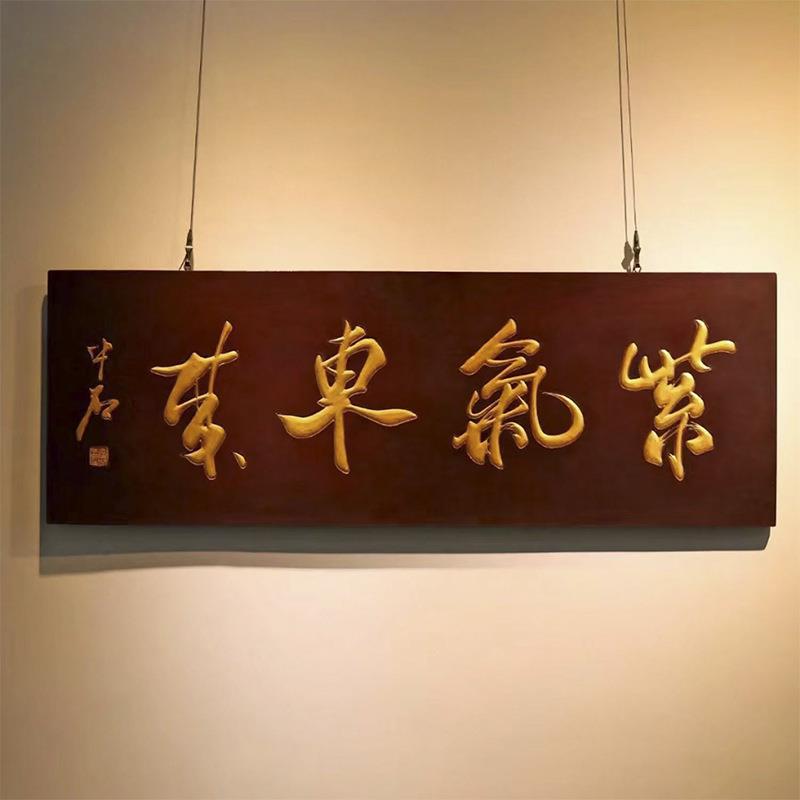 紫氣東來
中石